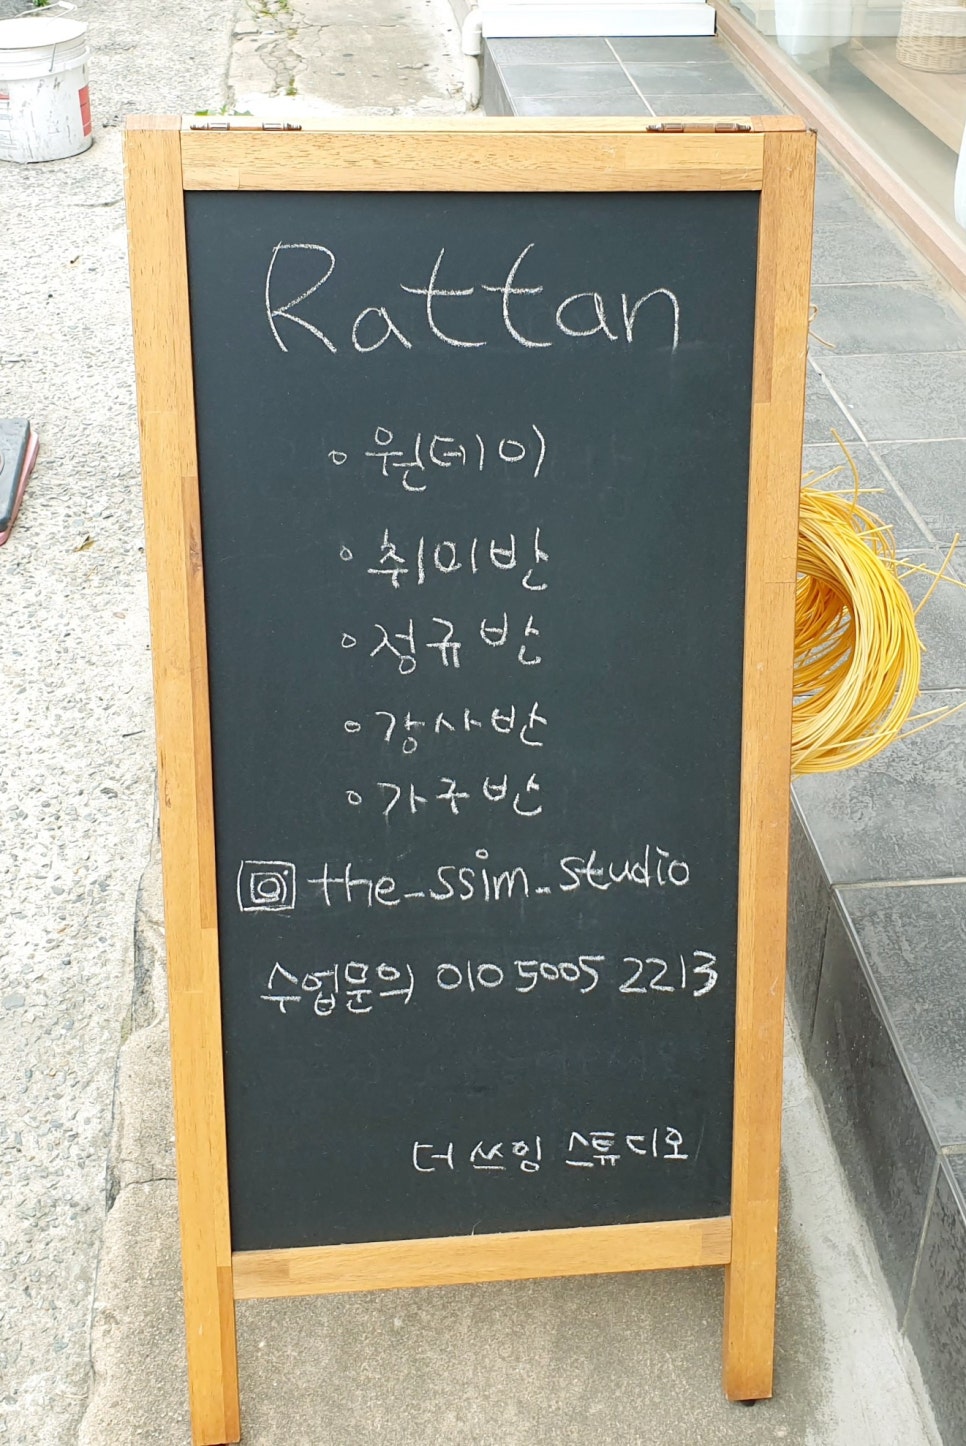 Rattan
◦ 원데이
◦ 취미반
◦ 정규반
◦ 강사반
◦ 가구반
the_ssim_studio
수업문의 010 5005 2213
더 쓰임 스튜디오